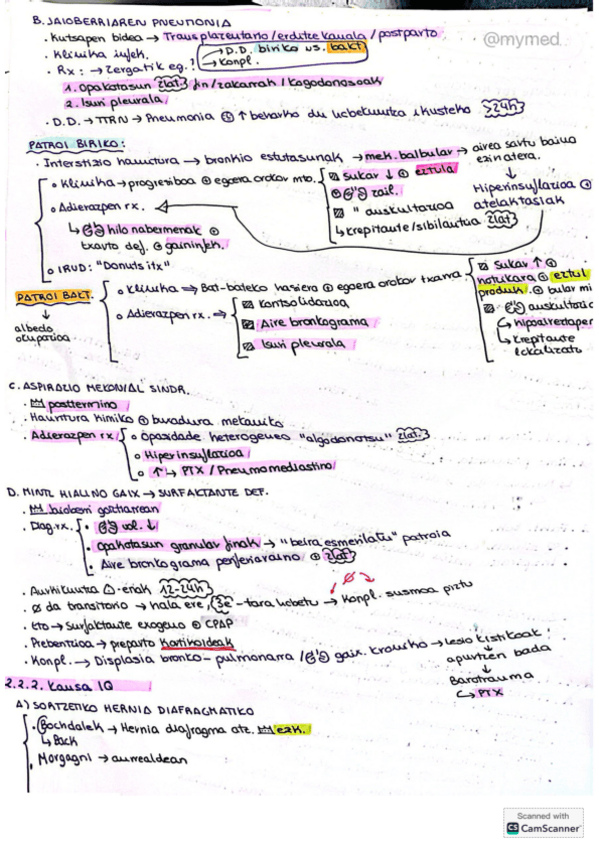 B. JAIOBERRIAREN PNEUMONIA
@mymed.
· Kutsapen bidea → Transplazentario/erditze kanala/postparto
· Klinika infek.
→ D.D. biriko vs. bakt
→ Konpl.
· Rx: → Zergatik eg.?
1. Opakotasun zlat. fin/zakarrak/kogodonosoak
2. Isuri pleurala.
· D.D. → TTRN → Pneumonia ⊕ ↑ beharko du ikusteko >24h
PATROI BIRIKO:
· Interstizio hanctura → bronkio estutasunak → mek. balbular → airea sartu baina
ezin atera.
↓
Hiperinsuflazioa
atelaktasiak
◦ Klinika → progresiboa ⊕ egoera orokor mto.
Sukar ↓ ⊕ eztula
zail.
" auskultazioa
↳ krepitante/sibilantua zlat
◦ Adierazpen rx.
↳ hilo nabarmenak ⊕
txarto def. ⊕ gaininfek.
◦ IRUD: "Donuts itx"
PATROI BAKT.
↓
albeolo
okupazioa
◦ Klinika → Bat-bateko hasiera ⊕ egoera orokor txarra
Sukar ↑ ⊕
⊕ eztul
produk. ⊕ bular mi
auskultazio
↳ Krepitante
lokalizato
◦ Adierazpen rx. →
Kontsolidazioa
Aire bronkograma
Isuri pleurala
C. ASPIRAZIO MEKONIAL SINDR.
· posttermino
· Hanctura kimiko ⊕ buxadura mekaniko
· Adierazpen rx
◦ Opazidade heterogeneo "algodonotsu" zlat.
◦ Hiperinsuflazioa
◦ ↑ → PTX / Pneumomediastino
D. MINTZ HIALINO GAIX → SURFAKTANTE DEF.
· haioberri goiztiarrean
· Diag. rx.
· vol. ↓
· Opakotasun granular finak → "beira esmerilatu" patroia
· Aire bronkograma periferiaraino ⊕ zlat
· Aurkikuntza -enak 12-24h
· ∅ da transitorio → hala ere, 3e -tara hobetu → Konpl. susmoa piztu
∅
· tto → surfaktante exogeno ⊕ CPAP
· Prebentzioa → preparto Kortikoideak
· Konpl. → Displasia bronko-pulmonarra / gaix. kroniko → lesio kistikoak !
↓
apurtzen bada
↓
Barotrauma
↳ PTX
2.2.2. Kausa IQ
A) SORTZETIKO HERNIA DIAFRAGMATIKO
· Bochdalek → Hernia diafragma atz. ezk.
↳ Back
· Morgagni → aurrealdean
Scanned with
CS CamScanner